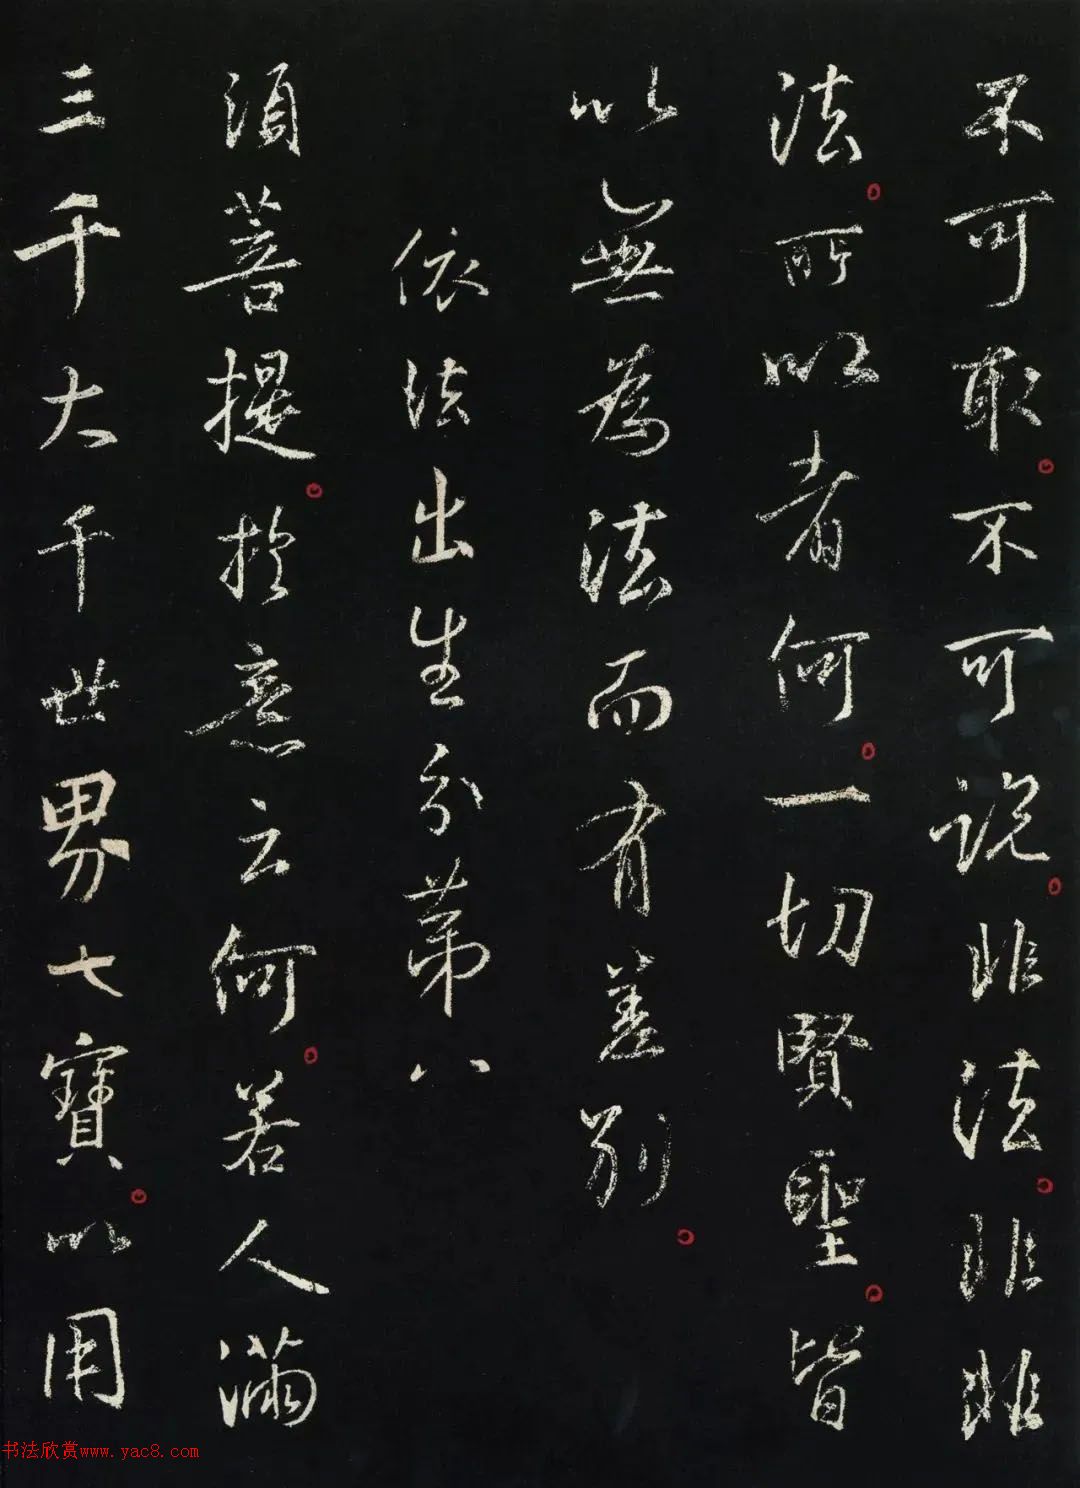 不可取不可說非法非非
法所以者何一切賢聖皆
以無為法而有差別
依法出生分第八
須菩提於意云何若人滿
三千大千世界七寶以用
书法欣赏www.yac8.com